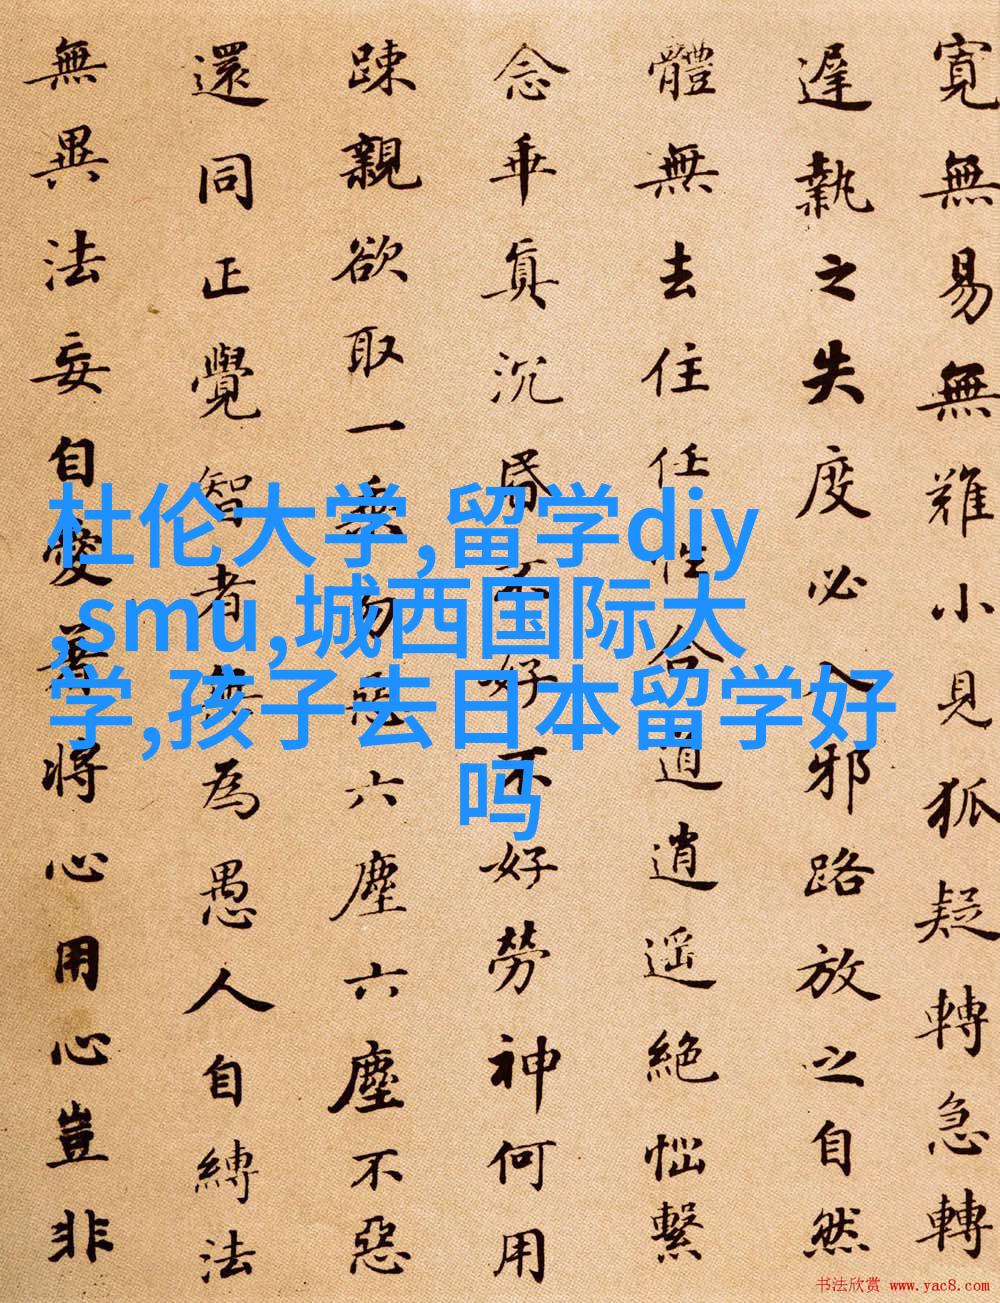 寬無易無難小見狐疑轉急轉
遲執之失度必入邪路放之自然
體無去住任性合道逍遥絕惱繫
念乖真沉昏不好不好勞神何用
踈親欲取一乘勿惡六塵六塵不惡
還同正覺智者無為愚人自縛法
無異法妄自愛著將心用心豈非
杜伦大学,留学diy
,smu,城西国际大
学,孩子去日本留学好
吗
书法欣赏 www.yac8.com